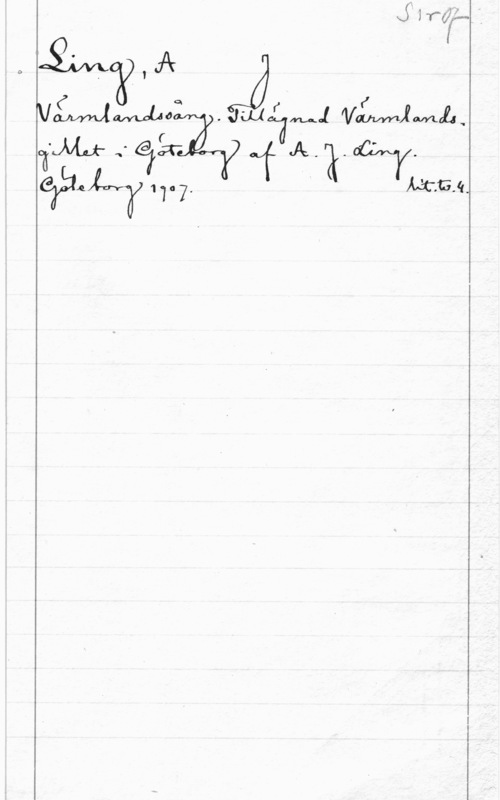 Ling, A J
Värmlandssång. Tillägnad Värmlands-
gillet i Göteborg af A. J. Ling.
Göteborg 1907.